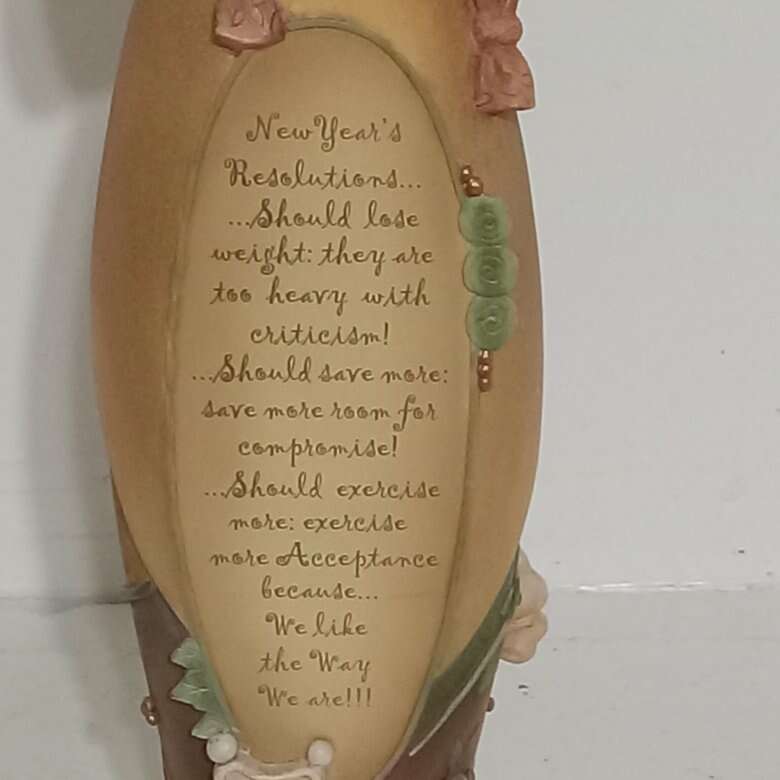 New Year's
Resolutions...
...Should lose
weight: they are
too heavy with
criticism!
...Should save more:
save more room for
compromise!
...Should exercise
more: exercise
more Acceptance
because...
We like
the Way
We are!!!